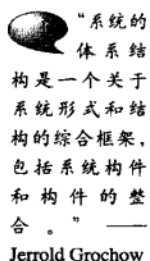 “系统的
体系结
构是一个关于
系统形式和结
构的综合框架，
包括系统构件
和构件的整
合。”——
Jerrold Grochow